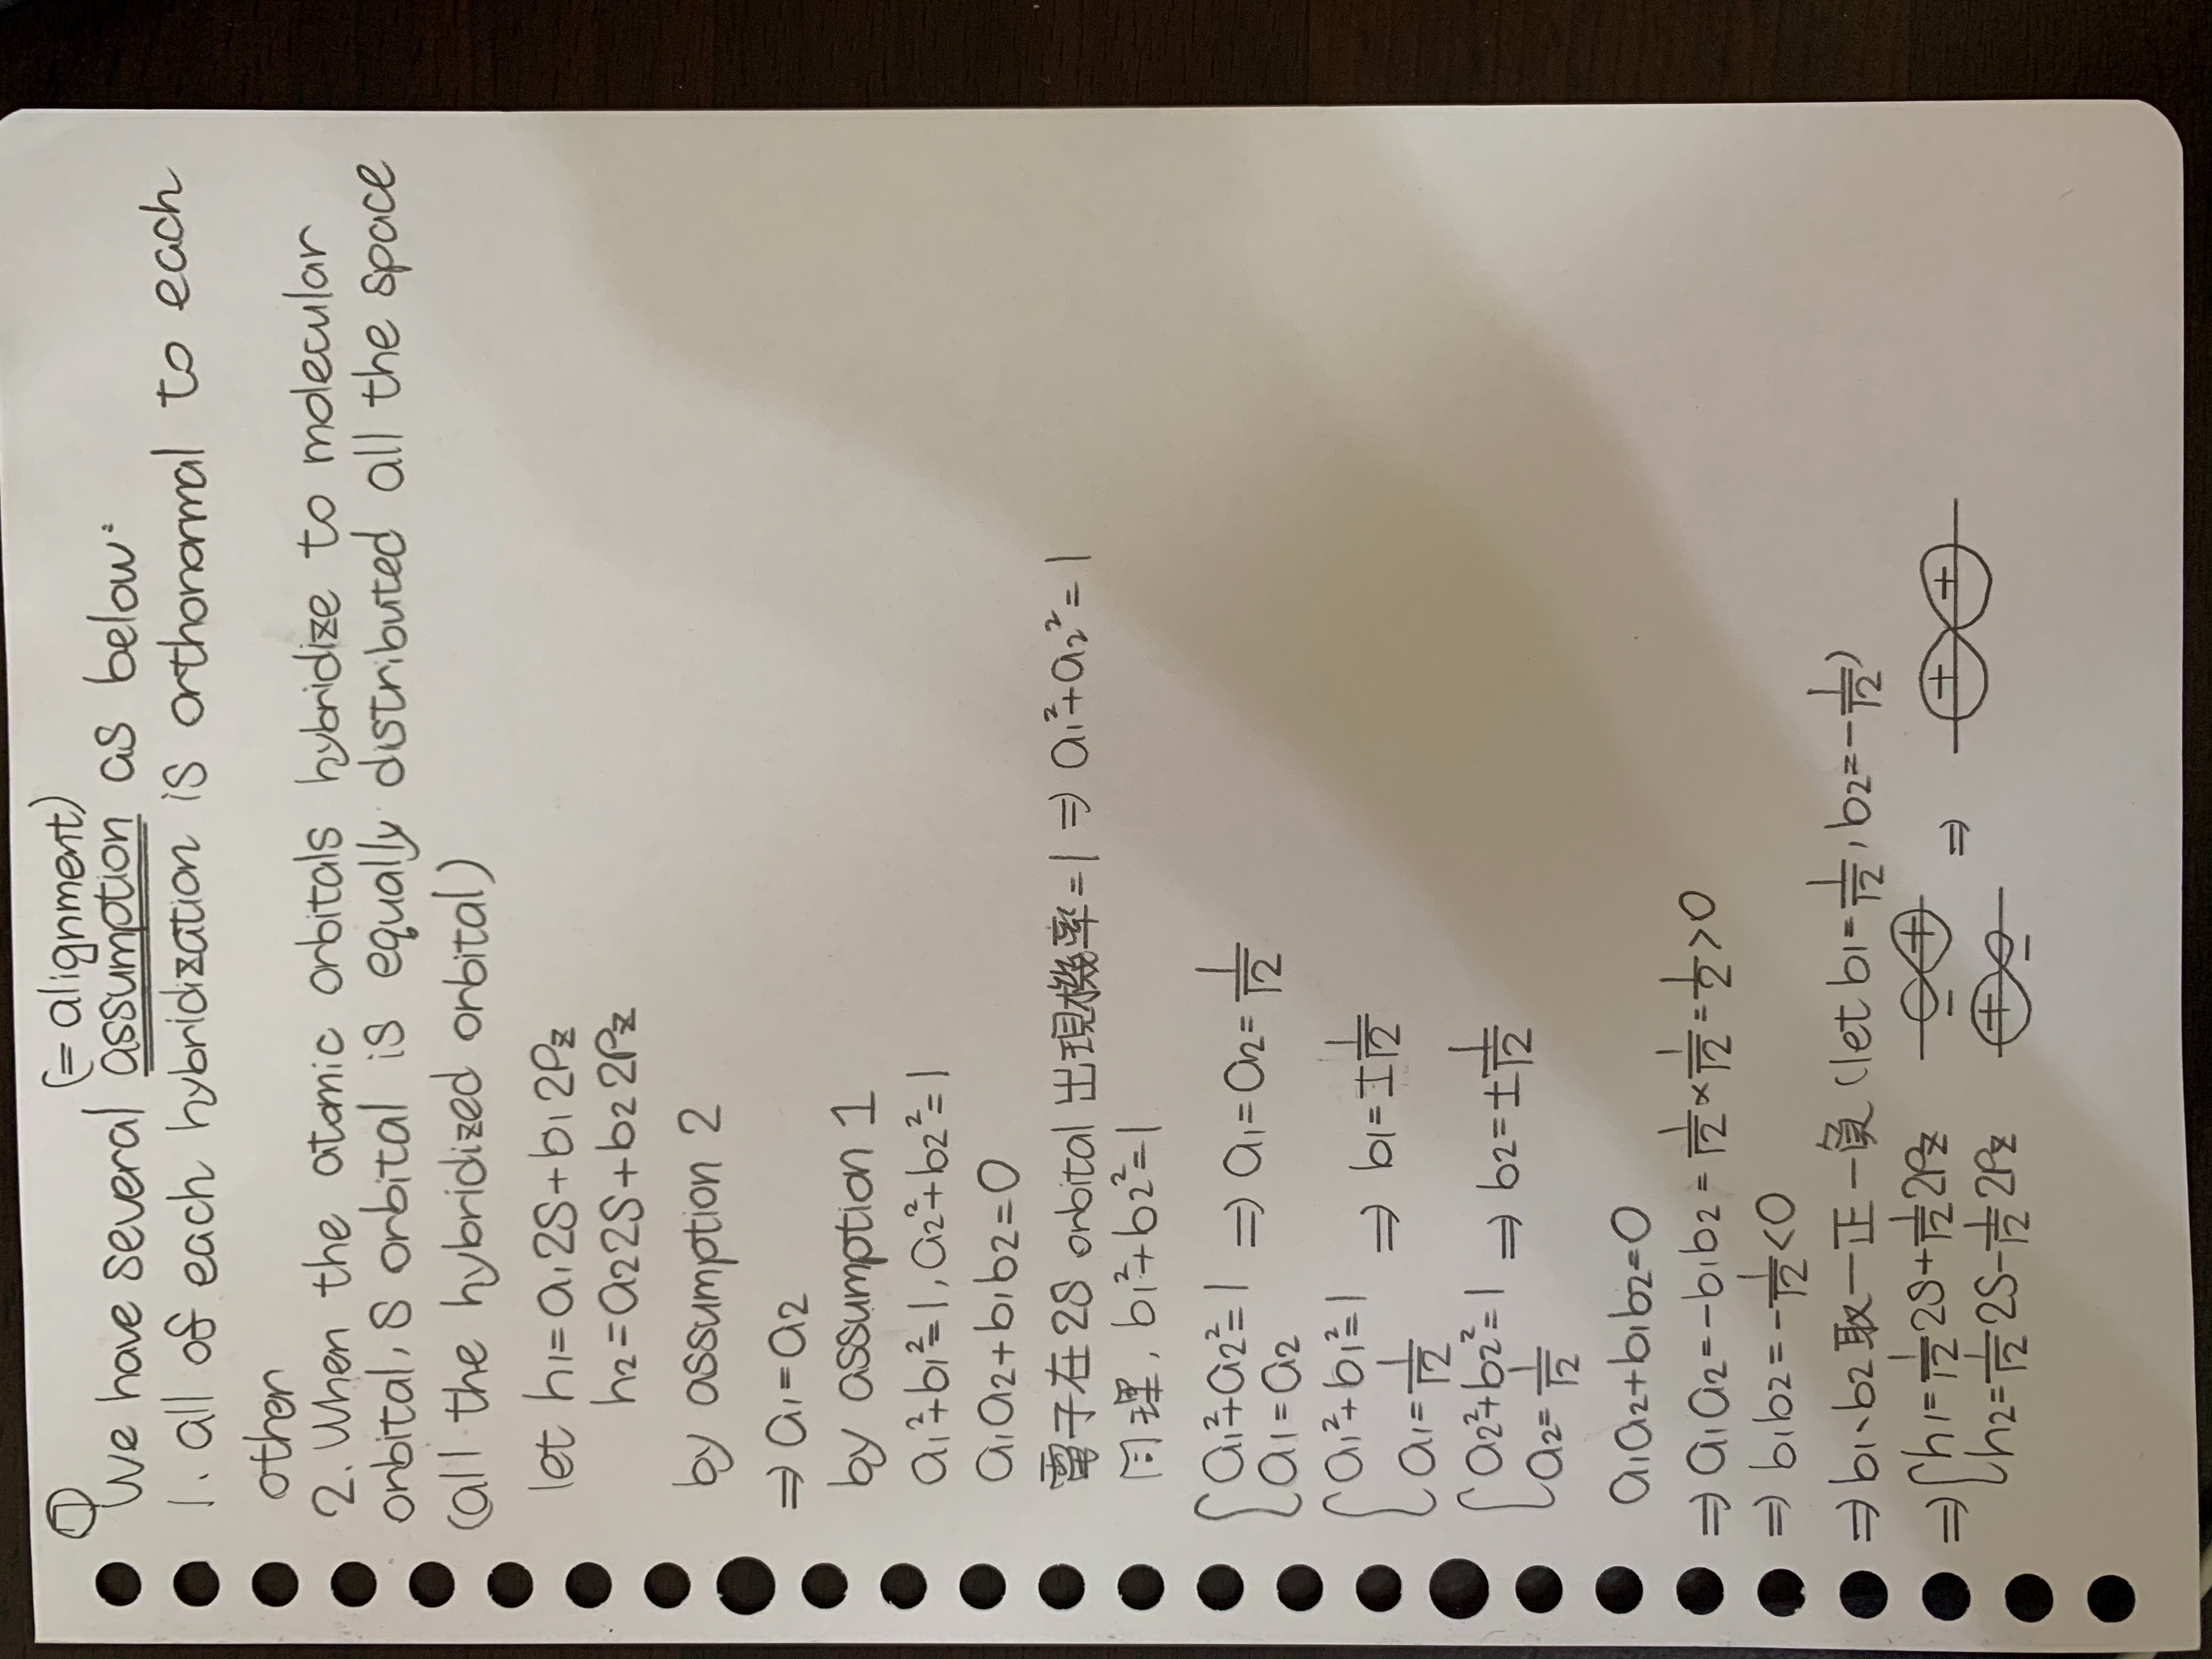 ⑦
(= alignment)
We have several assumption as below:
1. all of each hybridization is orthonormal to each
other
2. When the atomic orbitals hybridize to molecular
orbital, S orbital is equally distributed all the space
(all the hybridized orbital)
let h₁=a₁2S+b₁2Pz
h₂=a₂2S+b₂2Pz
by assumption 2
⇒ a₁=a₂
by assumption 1
a₁²+b₁²=1, a₂²+b₂²=1
a₁a₂+b₁b₂=0
電子在2S orbital 出現機率=1 ⇒ a₁²+a₂²=1
同理, b₁²+b₂²=1
{a₁²+a₂²=1
a₁=a₂ ⇒ a₁=a₂=1/√2
{a₁²+b₁²=1
a₁=1/√2 ⇒ b₁=±1/√2
{a₂²+b₂²=1
a₂=1/√2 ⇒ b₂=±1/√2
a₁a₂+b₁b₂=0
⇒ a₁a₂=-b₁b₂=1/√2×1/√2=1/2>0
⇒ b₁b₂=-1/√2<0
⇒ b₁、b₂取一正一負 (let b₁=1/√2, b₂=-1/√2)
⇒{h₁=1/√2 2S+1/√2 2Pz - + ⇒ + +
h₂=1/√2 2S-1/√2 2Pz + -